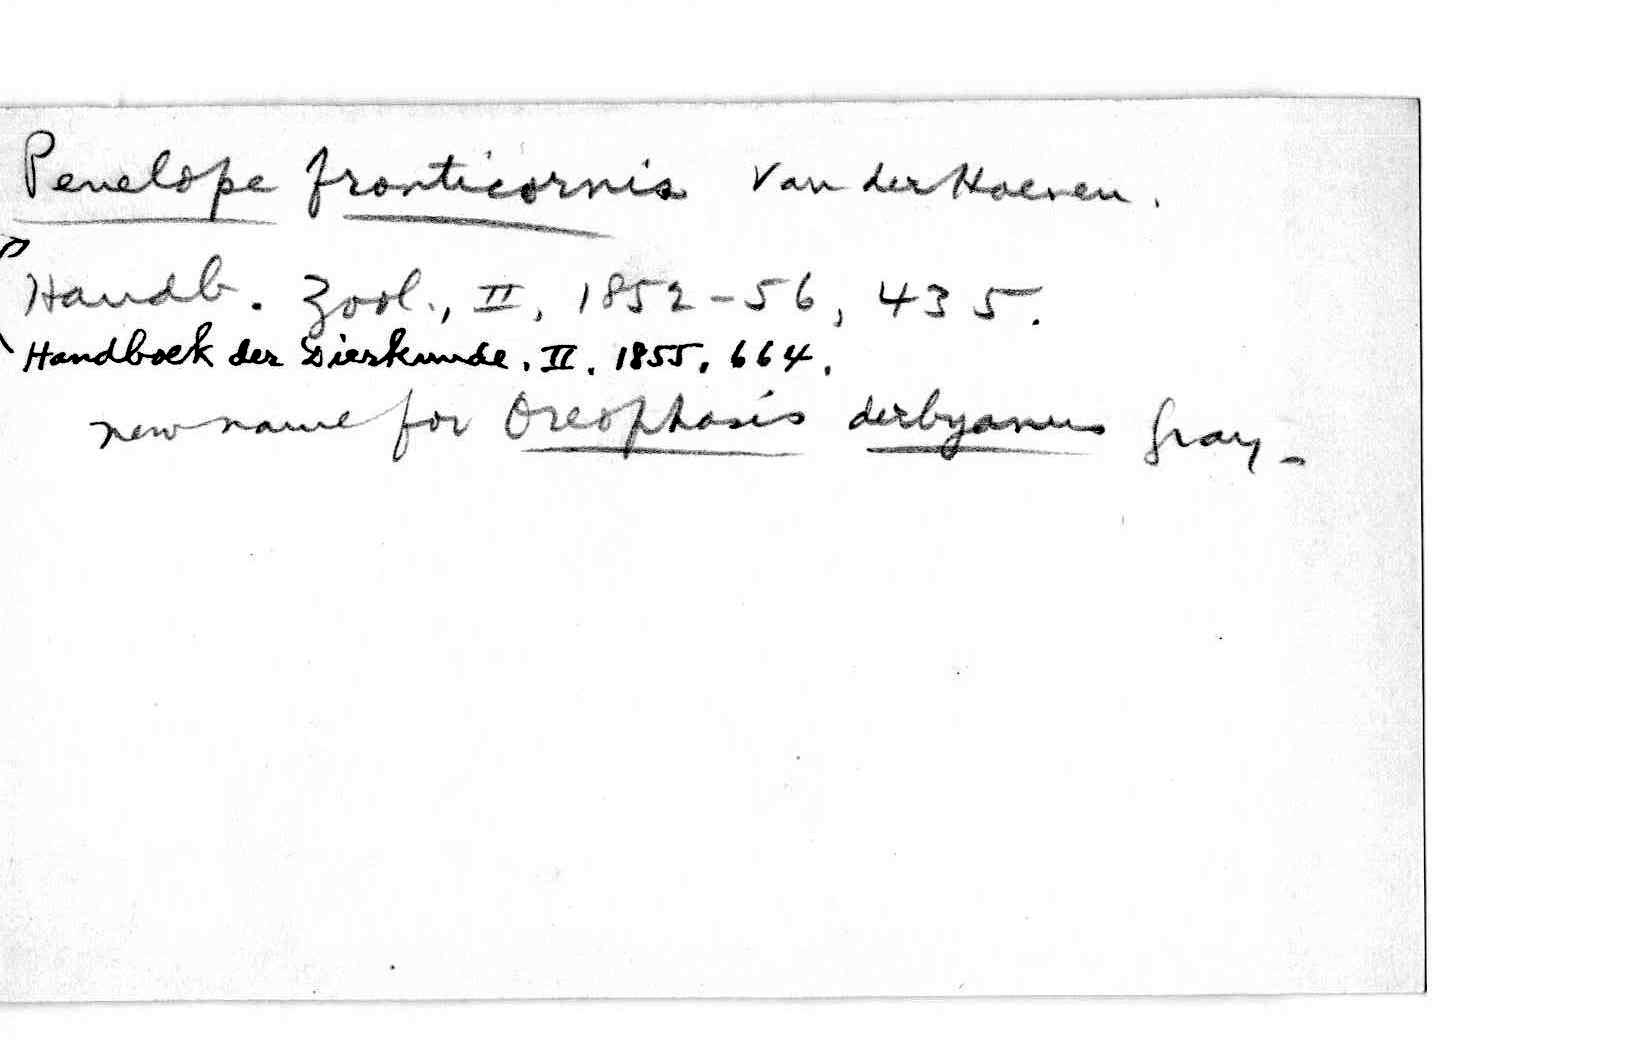 Penelope fronticornis Van der Hoeven.
Handb. Zool., II, 1852-56, 435.
Handboek der Dierkunde, II. 1855. 664.
new name for Oreophasis derbyanus Gray -